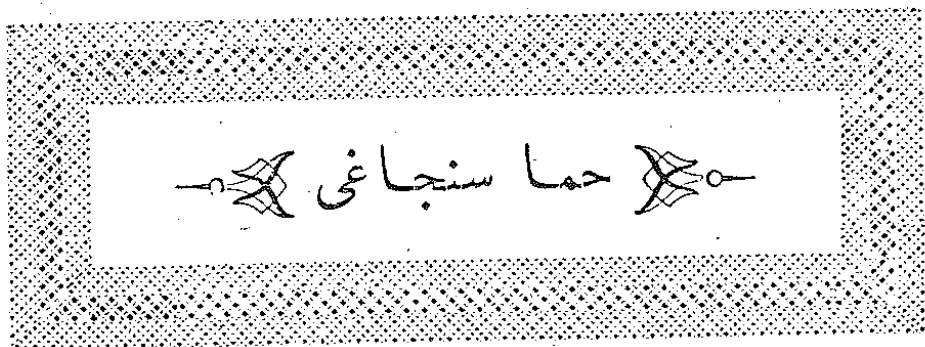 حما سنجاغى